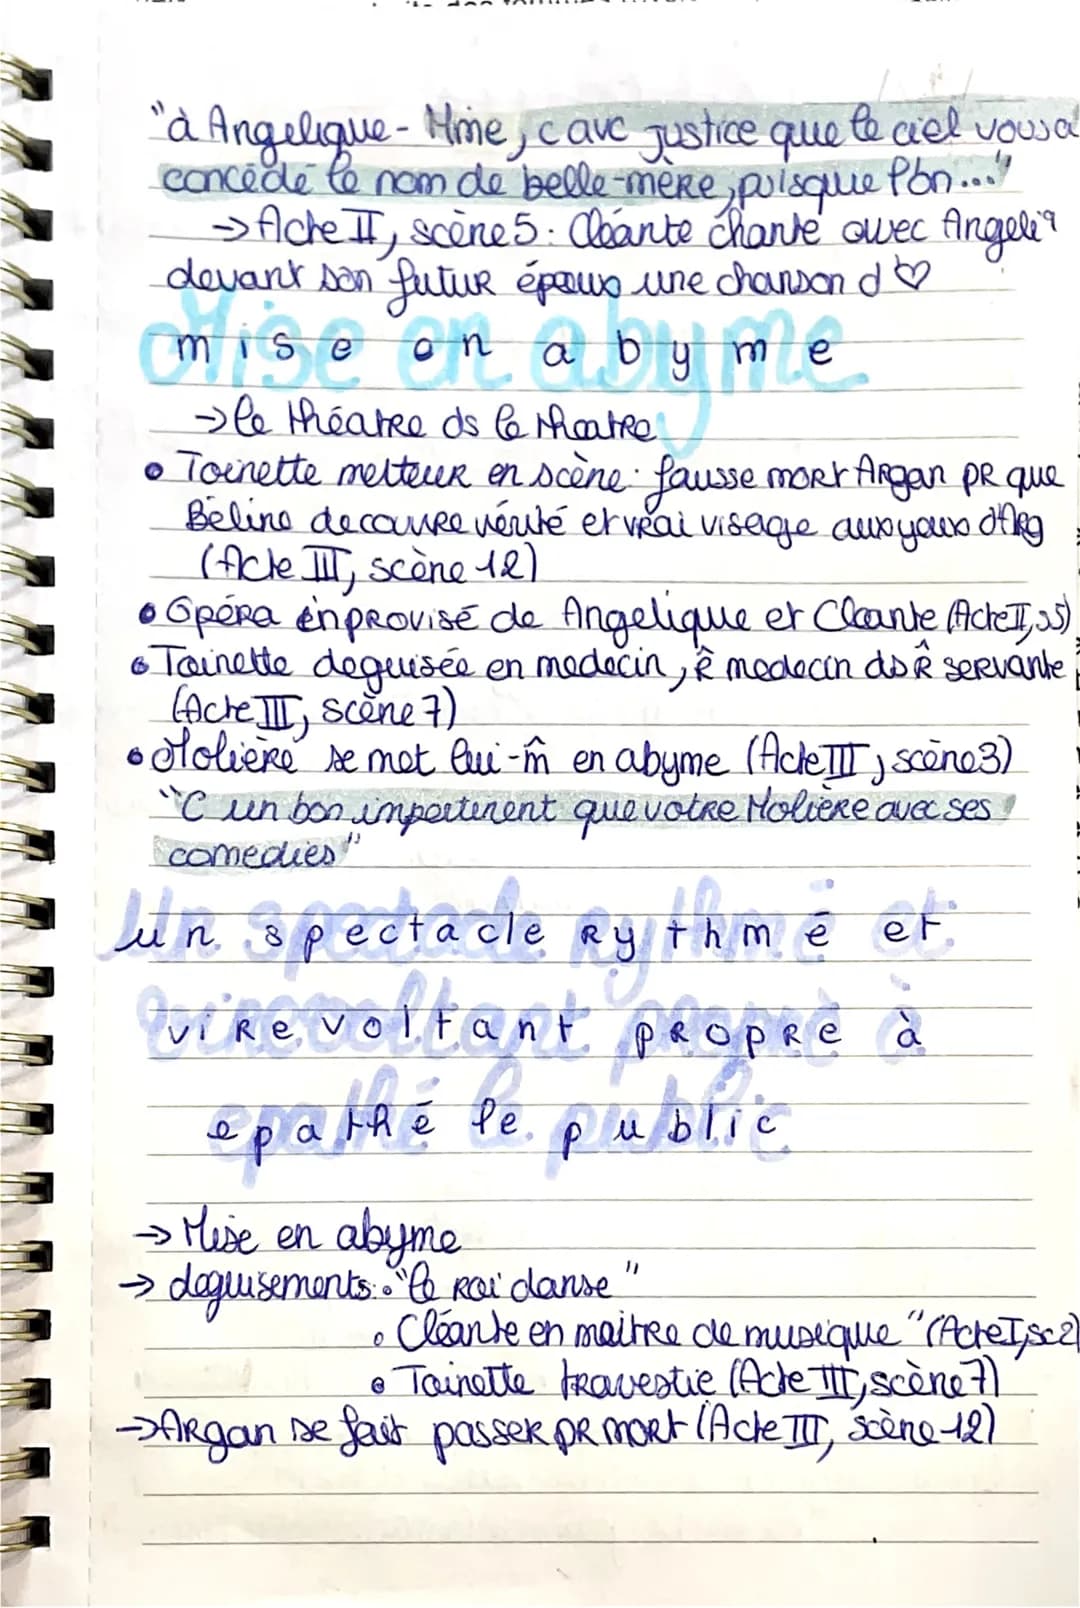 "à Angelique - Mme, c avc justice que le ciel vous a
concédé le nom de belle-mère, puisque l'on..."
→ Acte II, scène 5 : Cléante chante avec Angeliq
devant son futur époux une chanson d ♡
Mise en abyme
→ le théatre ds le theatre
• Toinette metteur en scène : fausse mort Argan pr que
Béline decouvre vérité et vrai visage aux yeux d'Arg
(Acte III, scène 12)
• Opéra inprovisé de Angelique et Cleante (Acte II, s5)
• Toinette deguisée en medecin, ê medecin ds ê servante
(Acte III, scène 7)
• Molière se met lui-m̂ en abyme (Acte III, scène 3)
"C un bon impertinent que votre Molière avec ses
comedies"
Un spectacle rythmé et
virevoltant propre à
epathé le public
→ Mise en abyme
→ deguisements : • "le roi danse"
• Cléante en maitre de musique "(Acte I, sc2)
• Toinette travestie (Acte III, scène 7)
→ Argan se fait passer pr mort (Acte III, scène 12)